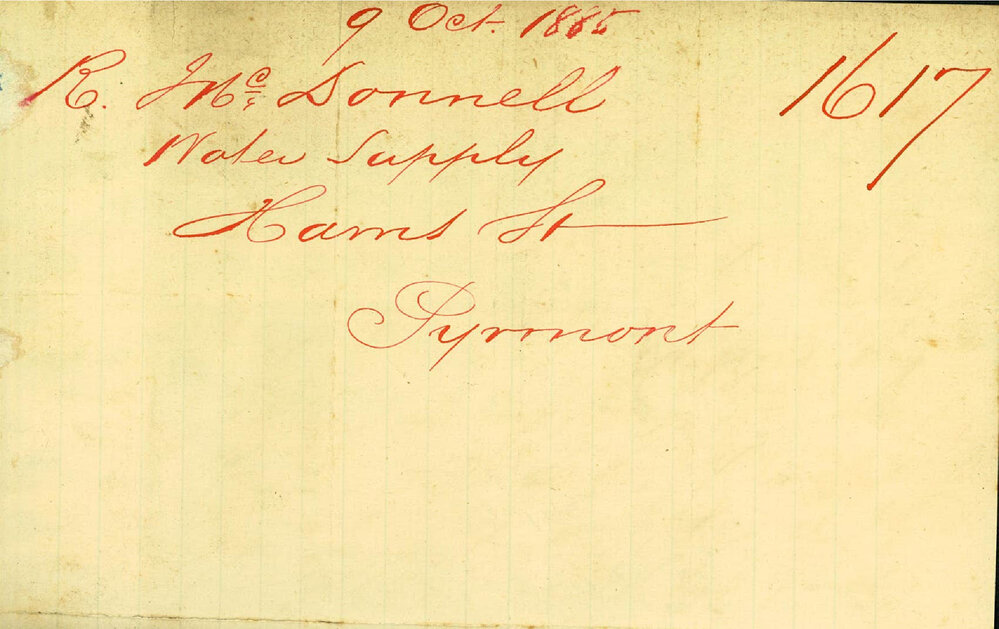 9 Oct. 1885
R. McDonnell 1617
Water Supply
Harris St
Pyrmont